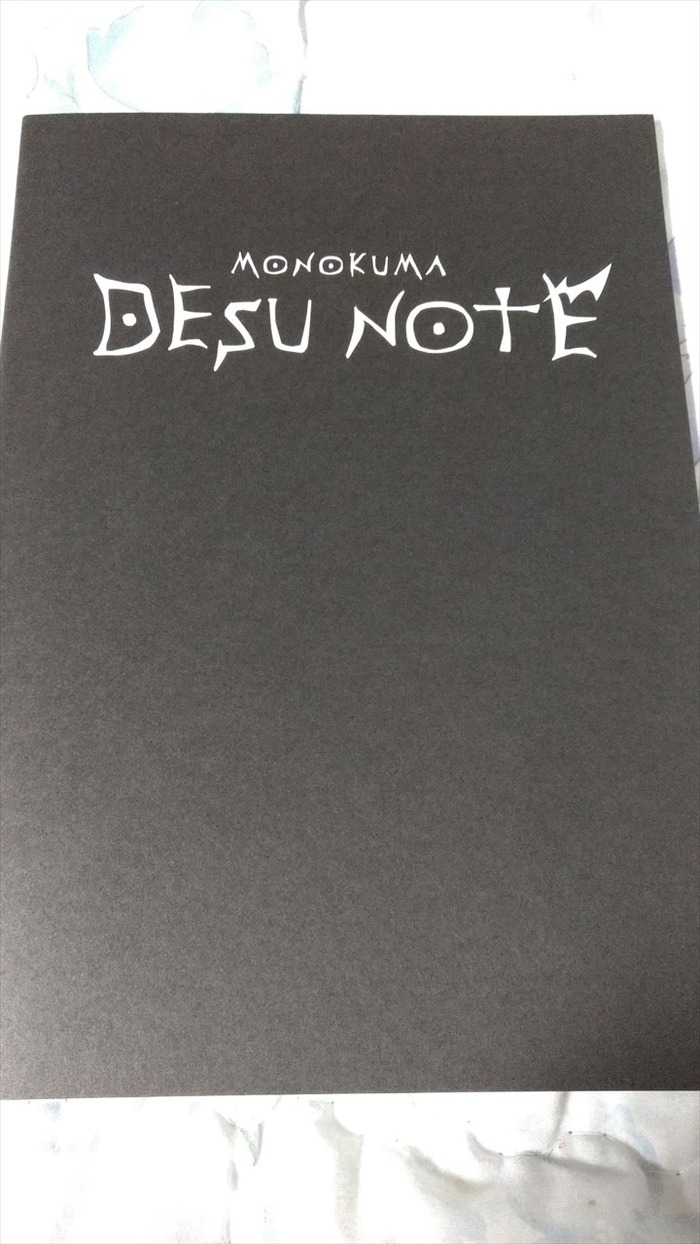 MONOKUMA
DESU NOTE